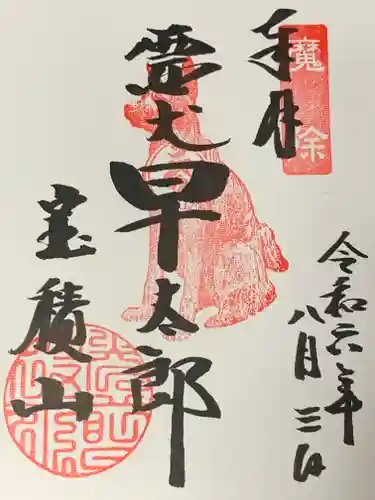 奉拝
魔除
霊犬早太郎
宝積山
令和六年
八月三日